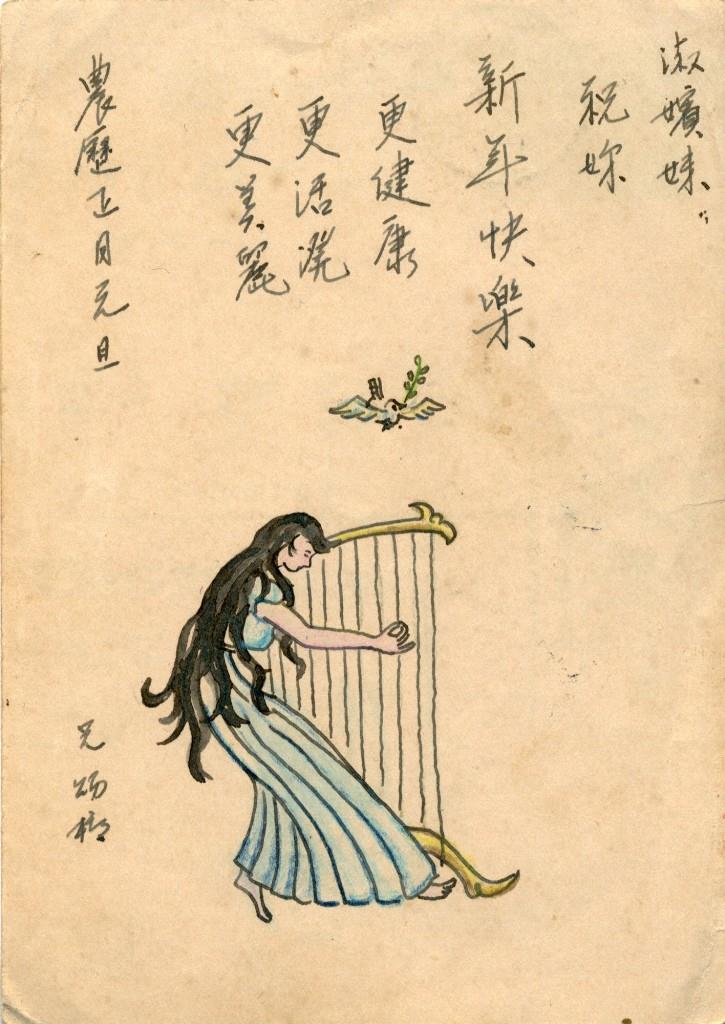 淑嬪妹：
祝妳
新年快樂
更健康
更活潑
更美麗
農歷正月元旦
兄